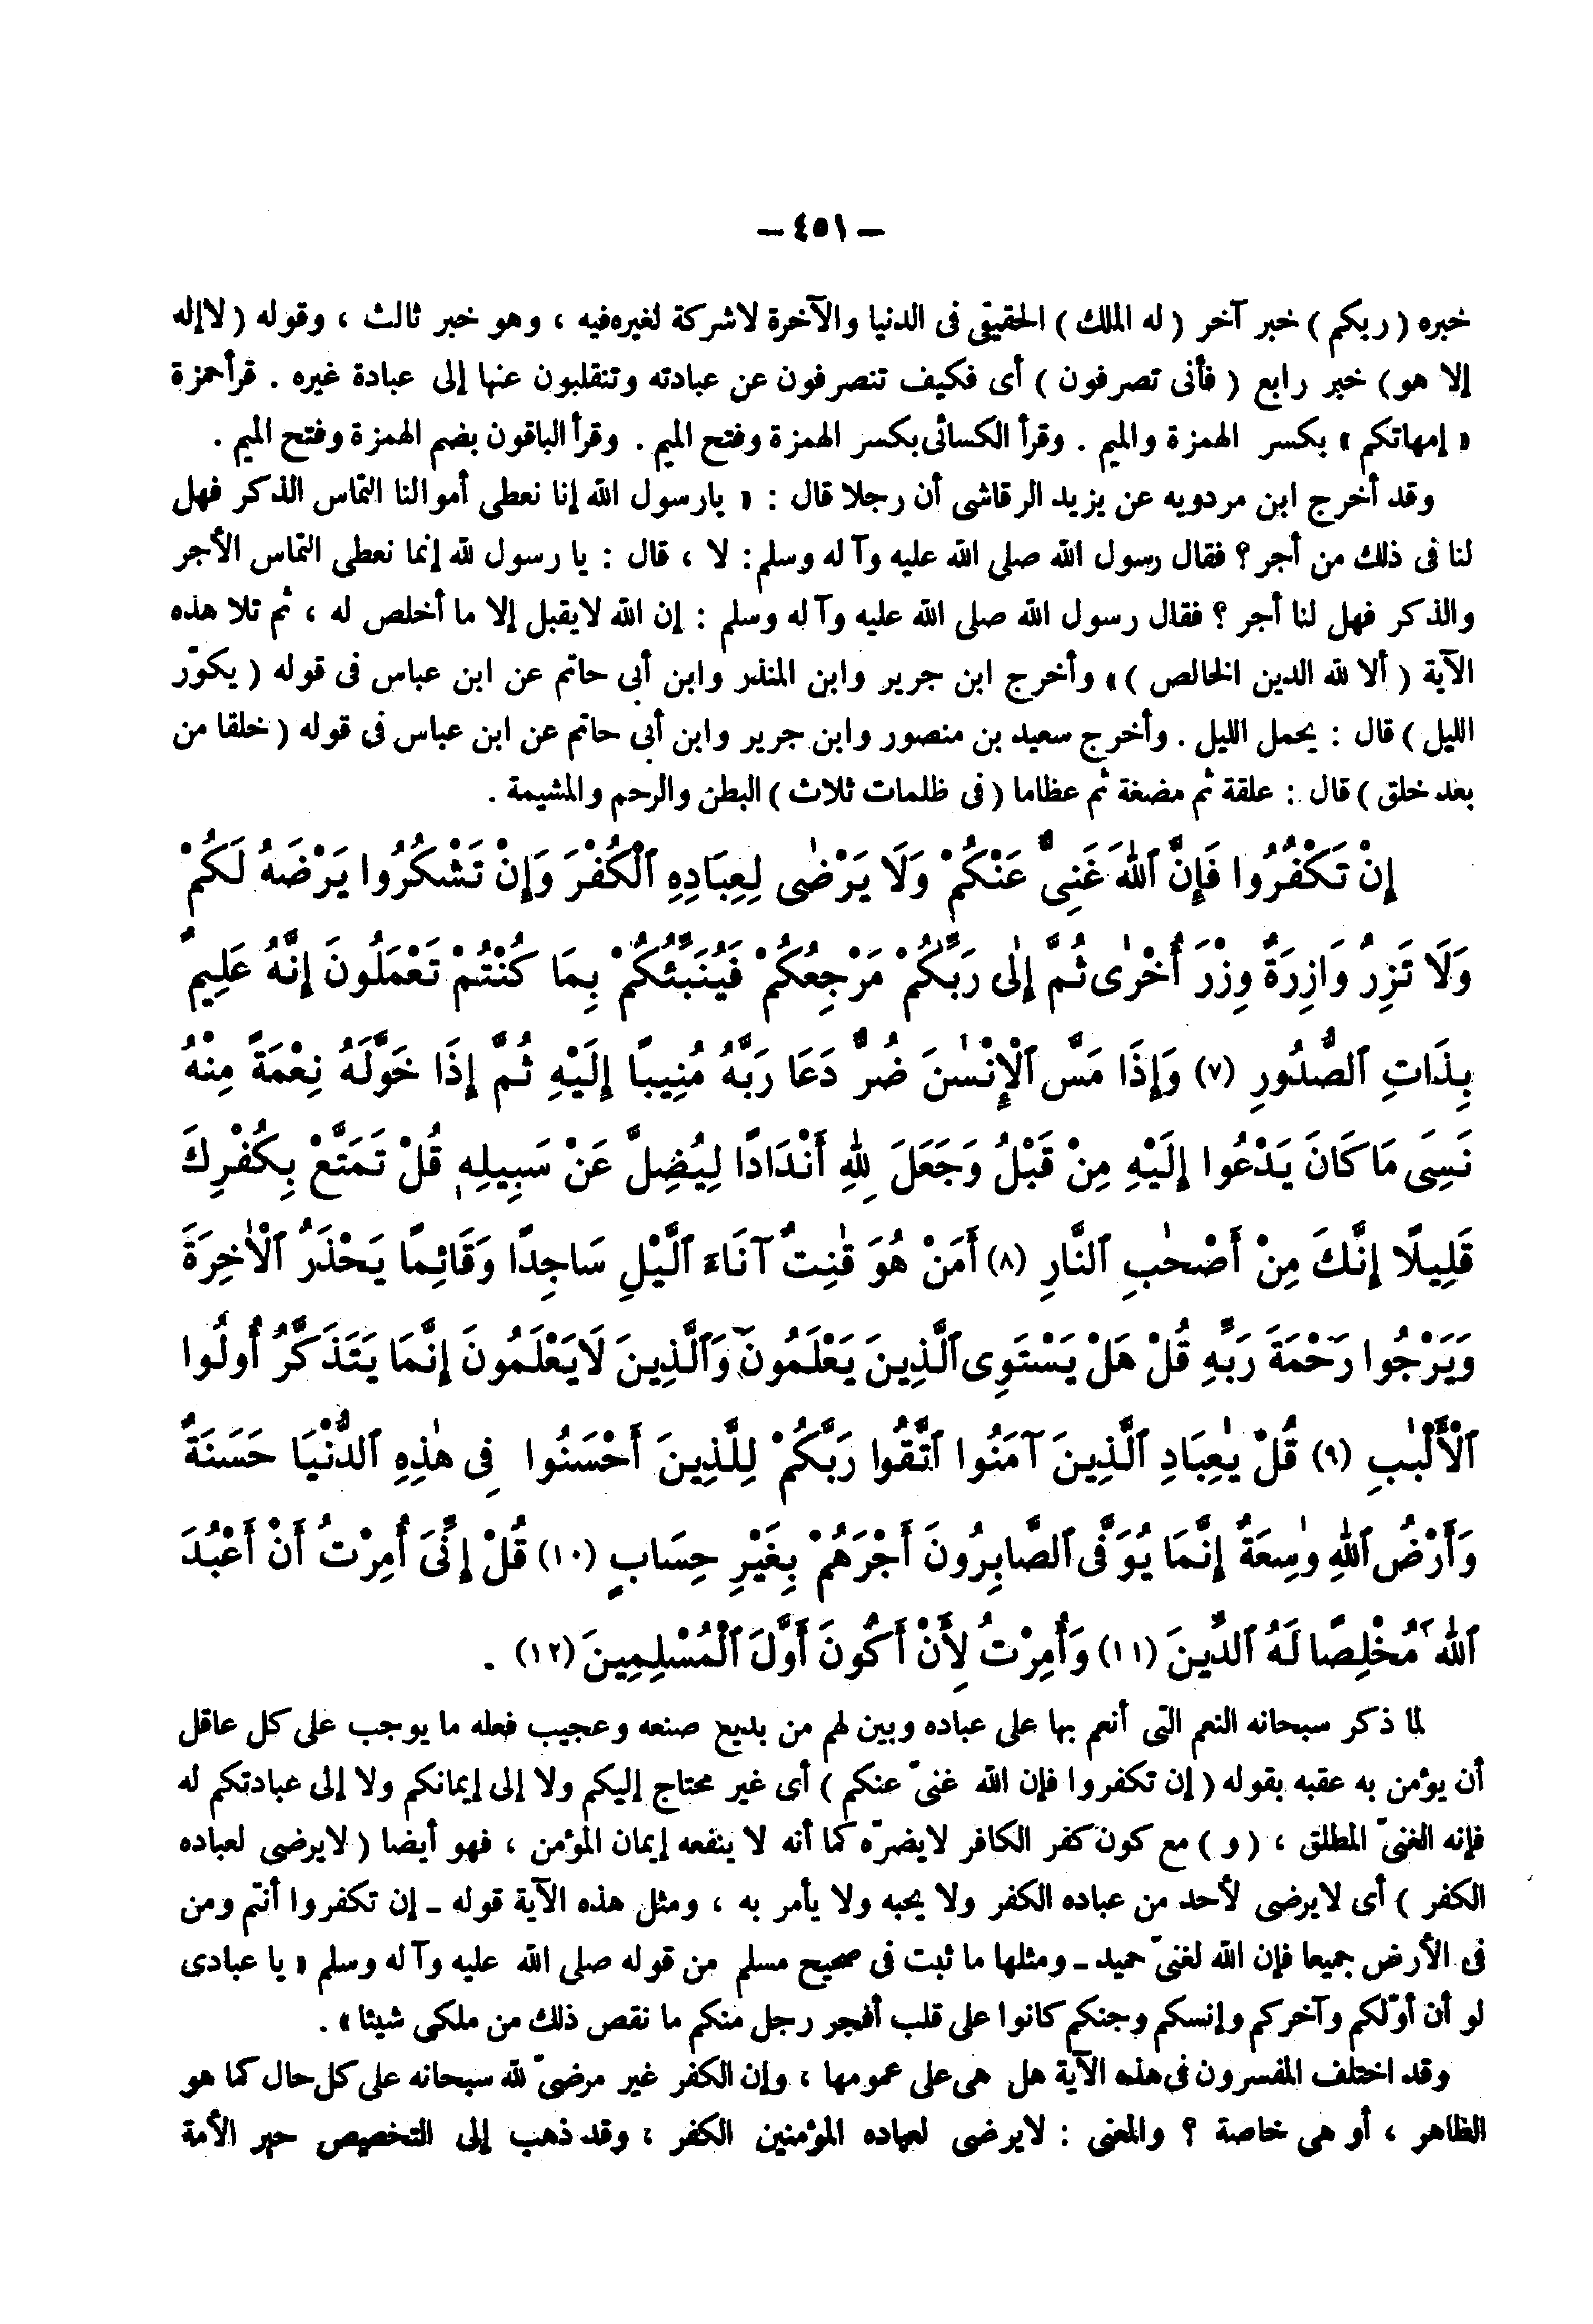 — ٤٥١ —
خبره ( ربكم ) خبر آخر ( له الملك ) الحقيقى فى الدنيا والآخرة لاشركة لغيره فيه ، وهو خبر ثالث ، وقوله ( لاإله
إلا هو ) خبر رابع ( فأنى تصرفون ) أى فكيف تنصرفون عن عبادته وتنقلبون عنها إلى عبادة غيره . قرأ حمزة
« إمهاتكم » بكسر الهمزة والميم . وقرأ الكسائى بكسر الهمزة وفتح الميم . وقرأ الباقون بضم الهمزة وفتح الميم .
وقد أخرج ابن مردويه عن يزيد الرقاشى أن رجلا قال : « يارسول الله إنا نعطى أموالنا التماس الذكر فهل
لنا فى ذلك من أجر ؟ فقال رسول الله صلى الله عليه وآله وسلم : لا ، قال : يا رسول لله إنما نعطى التماس الأجر
والذكر فهل لنا أجر ؟ فقال رسول الله صلى الله عليه وآله وسلم : إن الله لايقبل إلا ما أخلص له ، ثم تلا هذه
الآية ( ألا لله الدين الخالص ) » وأخرج ابن جرير وابن المنذر وابن أبى حاتم عن ابن عباس فى قوله ( يكوّر
الليل ) قال : يحمل الليل . وأخرج سعيد بن منصور وابن جرير وابن أبى حاتم عن ابن عباس فى قوله ( خلقا من
بعد خلق ) قال : علقة ثم مضغة ثم عظاما ( فى ظلمات ثلاث ) البطن والرحم والمشيمة .
إِنْ تَكْفُرُوا فَإِنَّ ٱللهَ غَنِىٌّ عَنْكُمْ وَلَا يَرْضٰى لِعِبَادِهِ ٱلْكُفْرَ وَإِنْ تَشْكُرُوا يَرْضَهُ لَكُمْ
وَلَا تَزِرُ وَازِرَةٌ وِزْرَ أُخْرٰى ثُمَّ إِلٰى رَبِّكُمْ مَرْجِعُكُمْ فَيُنَبِّئُكُمْ بِمَا كُنْتُمْ تَعْمَلُونَ إِنَّهُ عَلِيمٌ
بِذَاتِ ٱلصُّدُورِ (٧) وَإِذَا مَسَّ ٱلْإِنْسٰنَ ضُرٌّ دَعَا رَبَّهُ مُنِيبًا إِلَيْهِ ثُمَّ إِذَا خَوَّلَهُ نِعْمَةً مِنْهُ
نَسِىَ مَا كَانَ يَدْعُوا إِلَيْهِ مِنْ قَبْلُ وَجَعَلَ لِلهِ أَنْدَادًا لِيُضِلَّ عَنْ سَبِيلِهِ قُلْ تَمَتَّعْ بِكُفْرِكَ
قَلِيلًا إِنَّكَ مِنْ أَصْحٰبِ ٱلنَّارِ (٨) أَمَنْ هُوَ قٰنِتٌ آنَاءَ ٱلَّيْلِ سَاجِدًا وَقَائِمًا يَحْذَرُ ٱلْاٰخِرَةَ
وَيَرْجُوا رَحْمَةَ رَبِّهِ قُلْ هَلْ يَسْتَوِى ٱلَّذِينَ يَعْلَمُونَ وَٱلَّذِينَ لَايَعْلَمُونَ إِنَّمَا يَتَذَكَّرُ أُولُوا
ٱلْأَلْبٰبِ (٩) قُلْ يٰعِبَادِ ٱلَّذِينَ آمَنُوا ٱتَّقُوا رَبَّكُمْ لِلَّذِينَ أَحْسَنُوا فِى هٰذِهِ ٱلدُّنْيَا حَسَنَةٌ
وَأَرْضُ ٱللهِ وٰسِعَةٌ إِنَّمَا يُوَفَّى ٱلصَّابِرُونَ أَجْرَهُمْ بِغَيْرِ حِسَابٍ (١٠) قُلْ إِنِّىَ أُمِرْتُ أَنْ أَعْبُدَ
ٱللهَ مُخْلِصًا لَهُ ٱلدِّينَ (١١) وَأُمِرْتُ لِأَنْ أَكُونَ أَوَّلَ ٱلْمُسْلِمِينَ (١٢) .
لما ذكر سبحانه النعم التى أنعم بها على عباده وبين لهم من بديع صنعه وعجيب فعله ما يوجب على كل عاقل
أن يؤمن به عقبه بقوله ( إن تكفروا فإن الله غنىّ عنكم ) أى غير محتاج إليكم ولا إلى إيمانكم ولا إلى عبادتكم له
فإنه الغنىّ المطلق ، ( و ) مع كون كفر الكافر لايضرّه كما أنه لا ينفعه إيمان المؤمن ، فهو أيضا ( لايرضى لعباده
الكفر ) أى لايرضى لأحد من عباده الكفر ولا يحبه ولا يأمر به ، ومثل هذه الآية قوله ـ إن تكفروا أنتم ومن
فى الأرض جميعا فإن الله لغنىّ حميد ـ ومثلها ما ثبت فى صحيح مسلم من قوله صلى الله عليه وآله وسلم « يا عبادى
لو أن أوّلكم وآخركم وإنسكم وجنكم كانوا على قلب أفجر رجل منكم ما نقص ذلك من ملكى شيئا » .
وقد اختلف المفسرون فى هذه الآية هل هى على عمومها ، وإن الكفر غير مرضىّ لله سبحانه على كل حال كما هو
الظاهر ، أو هى خاصة ؟ والمعنى : لايرضى لعباده المؤمنين الكفر ، وقد ذهب إلى التخصيص حبر الأمة